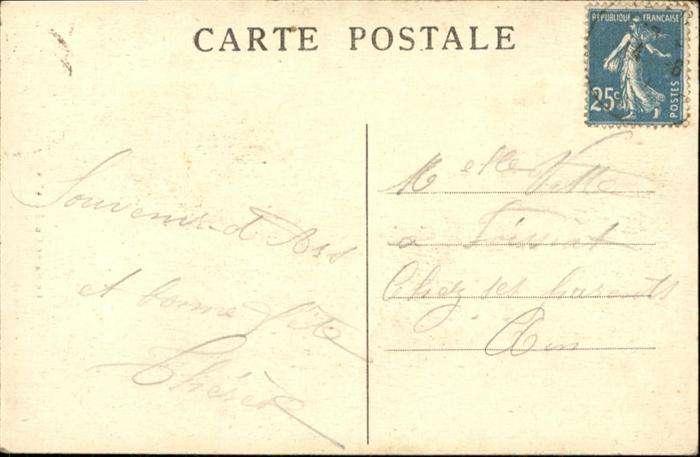 CARTE POSTALE
REPUBLIQUE FRANÇAISE
25c
POSTES
Souvenir d'Ars
et bonne fête
Melle
à
Chez ses parents
Ain